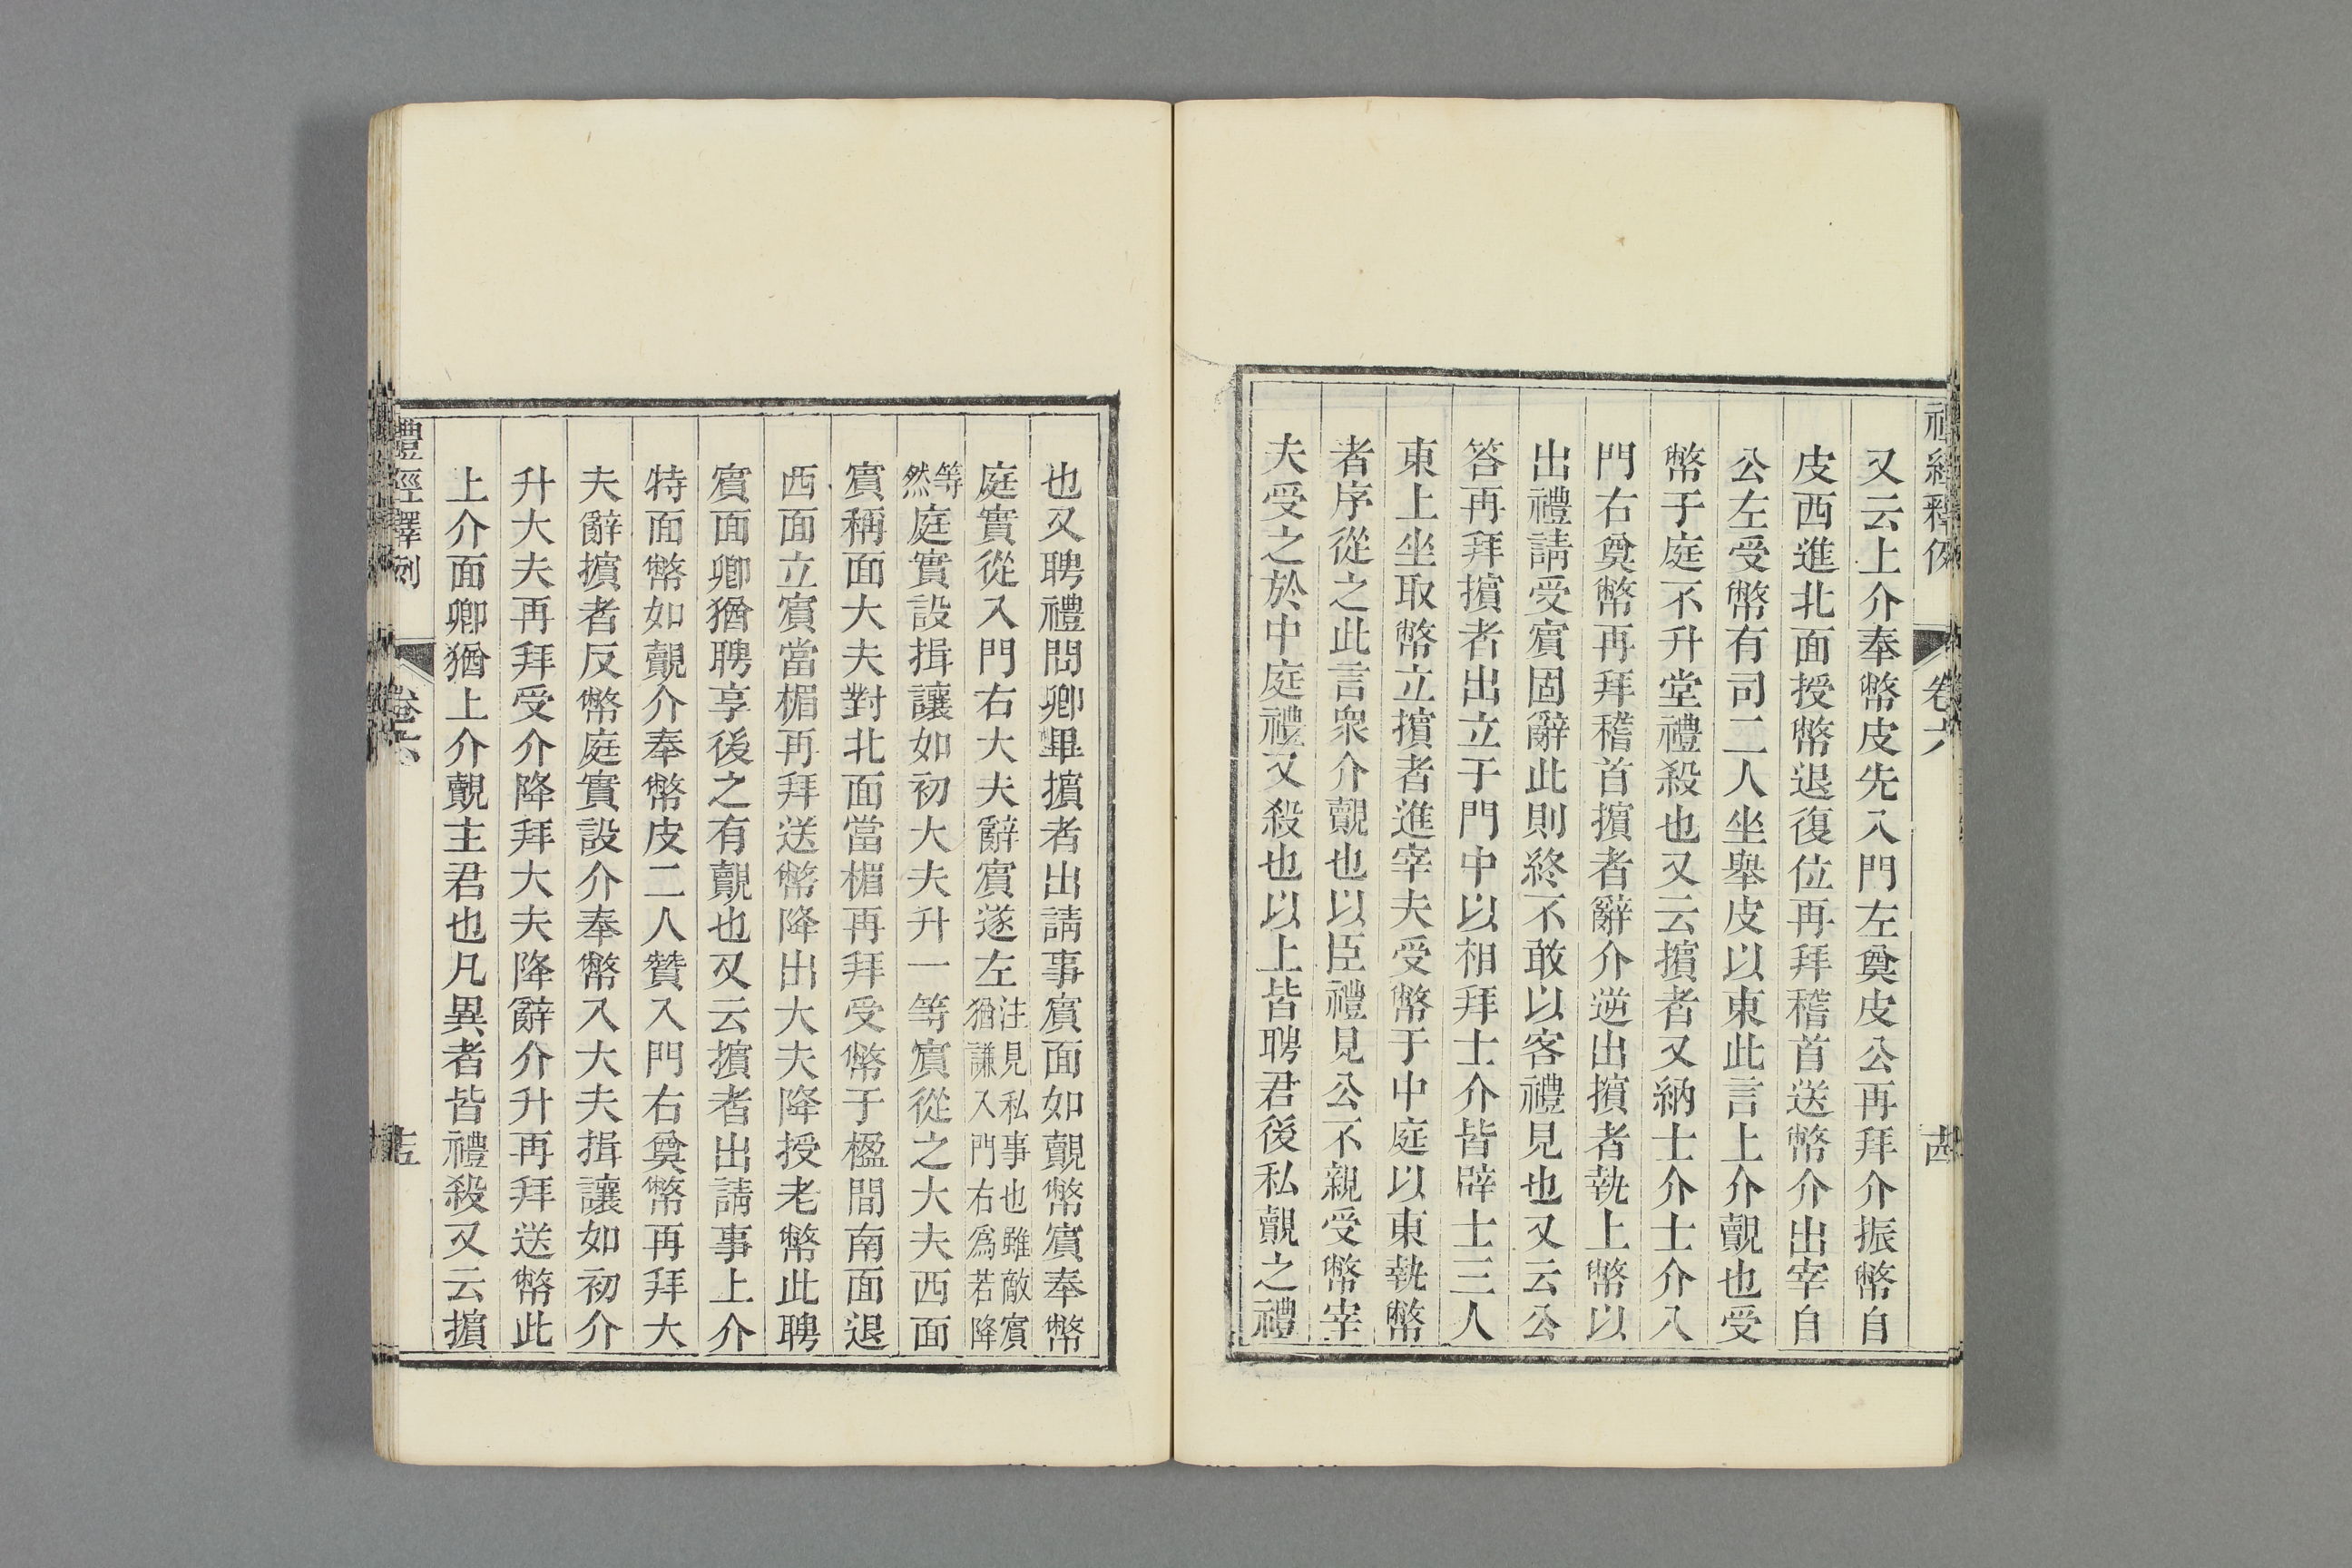 禮經釋例
卷六
又云上介奉幣皮先入門左奠皮公再拜介振幣自
皮西進北面授幣退復位再拜稽首送幣介出宰自
公左受幣有司二人坐舉皮以東此言上介覿也受
幣于庭不升堂禮殺也又云擯者又納士介士介入
門右奠幣再拜稽首擯者辭介逆出擯者執上幣以
出禮請受賓固辭此則終不敢以客禮見也又云公
答再拜擯者出立于門中以相拜士介皆辟士三人
東上坐取幣立擯者進宰夫受幣于中庭以東執幣
者序從之此言衆介覿也以臣禮見公不親受幣宰
夫受之於中庭禮又殺也以上皆聘君後私覿之禮
也又聘禮問卿畢擯者出請事賓面如覿幣賓奉幣
庭實從入門右大夫辭賓遂左注見私事也雖敵賓
猶謙入門右爲若降
等
然庭實設揖讓如初大夫升一等賓從之大夫西面
賓稱面大夫對北面當楣再拜受幣于楹間南面退
西面立賓當楣再拜送幣降出大夫降授老幣此聘
賓面卿猶聘享後之有覿也又云擯者出請事上介
特面幣如覿介奉幣皮二人贊入門右奠幣再拜大
夫辭擯者反幣庭實設介奉幣入大夫揖讓如初介
升大夫再拜受介降拜大夫降辭介升再拜送幣此
上介面卿猶上介覿主君也凡異者皆禮殺又云擯
禮經釋例
卷六